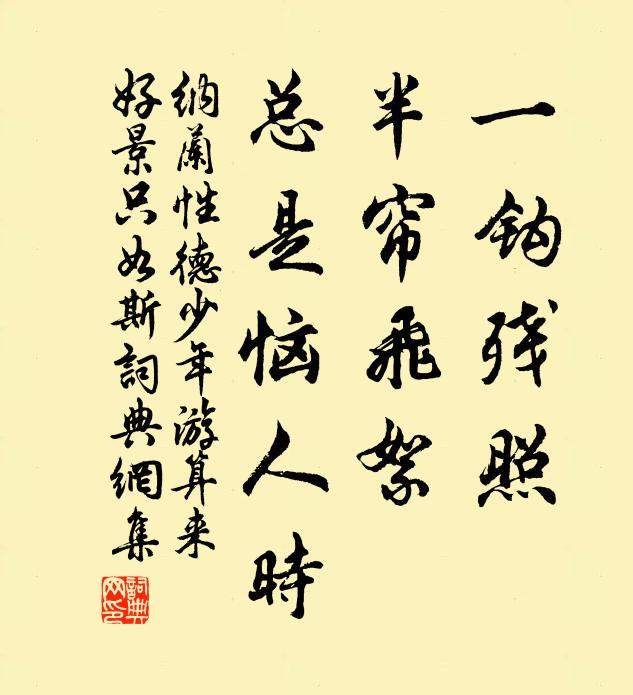 一钩残照
半帘飛絮
总是恼人時
纳蘭性德少年游算来
好景只如斯詞典網集
詞典
网印